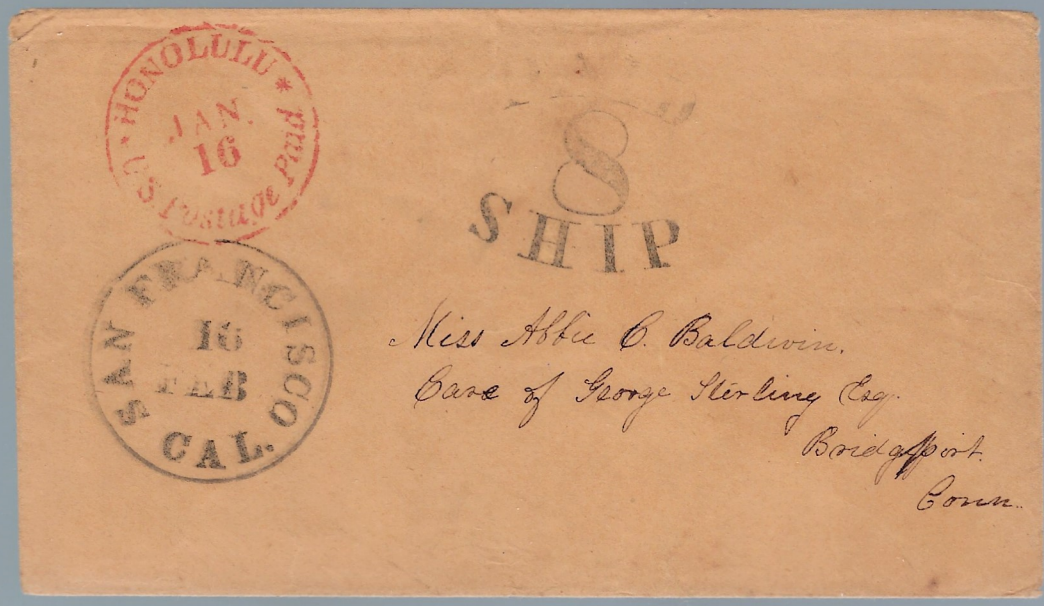 HONOLULU * US Postage Paid *
JAN.
16
SAN FRANCISCO
16
FEB
CAL.
8
SHIP
Miss Abbie C. Baldwin.
Care of George Sterling Esq.
Bridgport.
Conn.